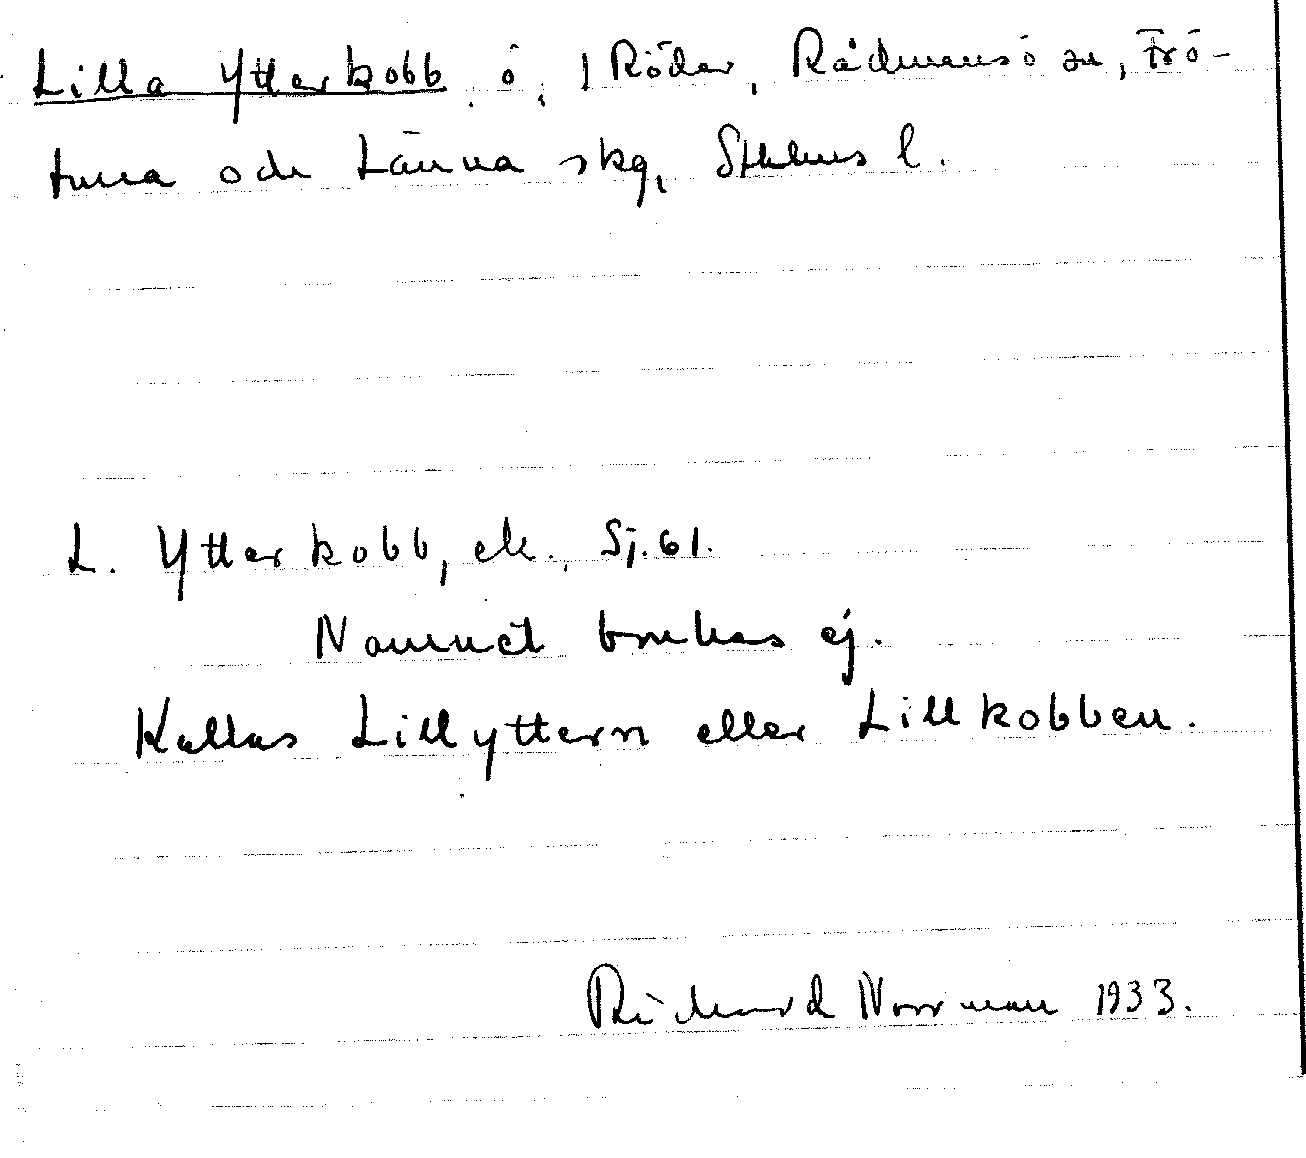 Lilla Ytterkobb, ö, i Röder, Rådmansö sn, Frö-
tuna och Länna skg, Sthlms l.
L. Ytterkobb, ek. Sj. 61.
Namnet brukas ej.
Kallas Lillyttern eller Lillkobben.
Richard Norrman 1933.